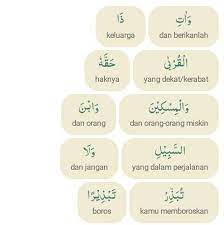 وَاٰتِ
dan berikanlah
ذَا
keluarga
الْقُرْبٰى
yang dekat/kerabat
حَقَّهٗ
haknya
وَالْمِسْكِيْنَ
dan orang-orang miskin
وَابْنَ
dan orang
السَّبِيْلِ
yang dalam perjalanan
وَلَا
dan jangan
تُبَذِّرْ
kamu memboroskan
تَبْذِيْرًا
boros